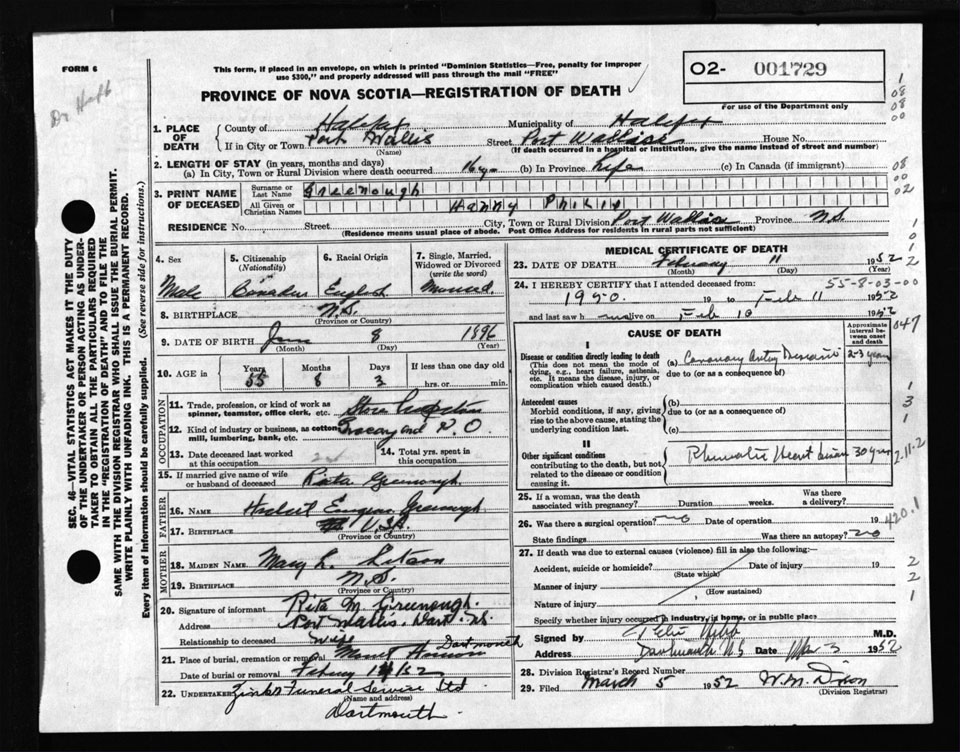 FORM 6
This form, if placed in an envelope, on which is printed "Dominion Statistics—Free, penalty for improper
use $300," and properly addressed will pass through the mail "FREE"
PROVINCE OF NOVA SCOTIA—REGISTRATION OF DEATH
O2- 001729
For use of the Department only
SEC. 46—VITAL STATISTICS ACT MAKES IT THE DUTY
OF THE UNDERTAKER OR PERSON ACTING AS UNDER-
TAKER TO OBTAIN ALL THE PARTICULARS REQUIRED
IN THE "REGISTRATION OF DEATH" AND TO FILE THE
SAME WITH THE DIVISION REGISTRAR WHO SHALL ISSUE THE BURIAL PERMIT.
WRITE PLAINLY WITH UNFADING INK. THIS IS A PERMANENT RECORD.
Every item of information should be carefully supplied. (See reverse side for instructions.)
1. PLACE OF DEATH
County of Halifax Municipality of Halifax
If in City or Town Port Wallis Street Port Wallis House No.
(Name) (If death occurred in a hospital or institution, give the name instead of street and number)
2. LENGTH OF STAY (in years, months and days)
(a) In City, Town or Rural Division where death occurred 16 yr (b) In Province Life (c) In Canada (if immigrant)
3. PRINT NAME OF DECEASED
Surname or Last Name Greenough
All Given or Christian Names Harry
RESIDENCE No. Street City, Town or Rural Division Port Wallis Province N.S.
(Residence means usual place of abode. Post Office Address for residents in rural parts not sufficient)
4. Sex Male
5. Citizenship (Nationality) Canadian
6. Racial Origin English
7. Single, Married, Widowed or Divorced (write the word) Married
8. BIRTHPLACE N.S.
(Province or Country)
9. DATE OF BIRTH 8 1896
(Month) (Day) (Year)
10. AGE in Years 55 Months 8 Days 3 If less than one day old hrs. or min.
OCCUPATION
11. Trade, profession, or kind of work as spinner, teamster, office clerk, etc. Store
12. Kind of industry or business, as cotton mill, lumbering, bank, etc. Grocery and P.O.
13. Date deceased last worked at this occupation
14. Total yrs. spent in this occupation
15. If married give name of wife or husband of deceased Rita Greenough
FATHER
16. Name Herbert Eugene Greenough
17. BIRTHPLACE U.S.A.
(Province or Country)
MOTHER
18. MAIDEN NAME Mary L.
19. BIRTHPLACE N.S.
(Province or Country)
20. Signature of informant Rita M. Greenough.
Address Port Wallis. Dart. N.S.
Relationship to deceased wife
21. Place of burial, cremation or removal Mount Hermon Dartmouth
Date of burial or removal 14/52
22. UNDERTAKER Funeral Service Ltd
(Name and address)
Dartmouth
MEDICAL CERTIFICATE OF DEATH
23. DATE OF DEATH February 11 1952
(Month) (Day) (Year)
24. I HEREBY CERTIFY that I attended deceased from: 55-8-03-00
1950. 19 to Feb 11 1952
and last saw h im alive on Feb 10 1952
CAUSE OF DEATH
Approximate interval between onset and death
I
Disease or condition directly leading to death
(This does not mean the mode of dying, e.g., heart failure, asthenia, etc. It means the disease, injury, or complication which caused death.)
(a) Coronary Artery Disease 2-3 years
due to (or as a consequence of)
Antecedent causes
Morbid conditions, if any, giving rise to the above cause, stating the underlying condition last.
(b)
due to (or as a consequence of)
(c)
II
Other significant conditions
contributing to the death, but not related to the disease or condition causing it.
Rheumatic Heart disease 30 years
25. If a woman, was the death associated with pregnancy? Duration weeks. Was there a delivery?
26. Was there a surgical operation? no Date of operation 19
State findings Was there an autopsy? no
27. If death was due to external causes (violence) fill in also the following:—
Accident, suicide or homicide? Date of injury 19
(State which)
Manner of injury
(How sustained)
Nature of injury
Specify whether injury occurred in industry, in home, or in public place
Signed by M.D.
Address Dartmouth N.S Date Mar 3 1952
28. Division Registrar's Record Number
29. Filed March 5 1952 W. M. Dixon
(Division Registrar)
047
420.1